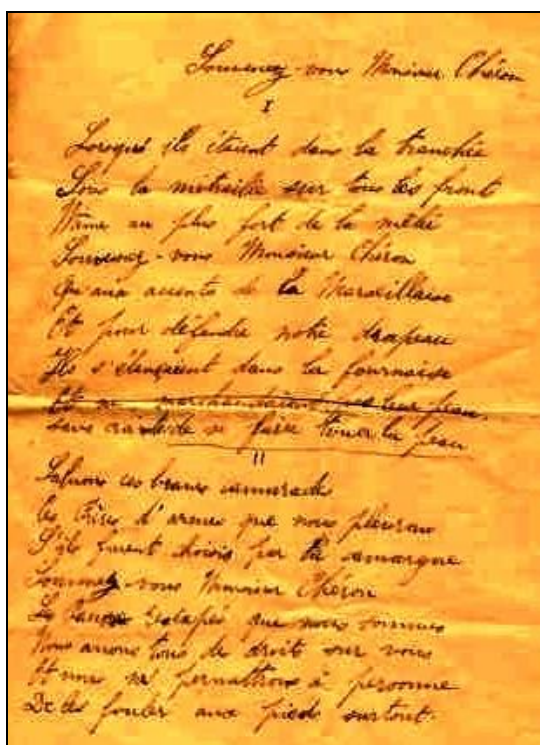 Souvenez-vous Monsieur Chéron
I
Lorsqué ils étaient dans la tranchée
Sous la mitraille sur tous les front
Même au plus fort de la mêlé
Souvenez-vous Monsieur Chéron
Qu'aux accents de la Marseillaise
Et pour défendre notre drapeau
Ils s'élançaient dans la fournaise
Et ne marchandaient pas leur peau.
sans crainte de se faire trouer la peau
II
Saluons ces braves camarades
Ces frères d'armes que nous pleurons
S'ils furent choisis par la camargue
Souvenez-vous Monsieur Chéron
Les rescapés que nous sommes
Nous avons tous de droit sur vous
Et nous ne permettrons à personne
De les fouler aux pieds surtout.